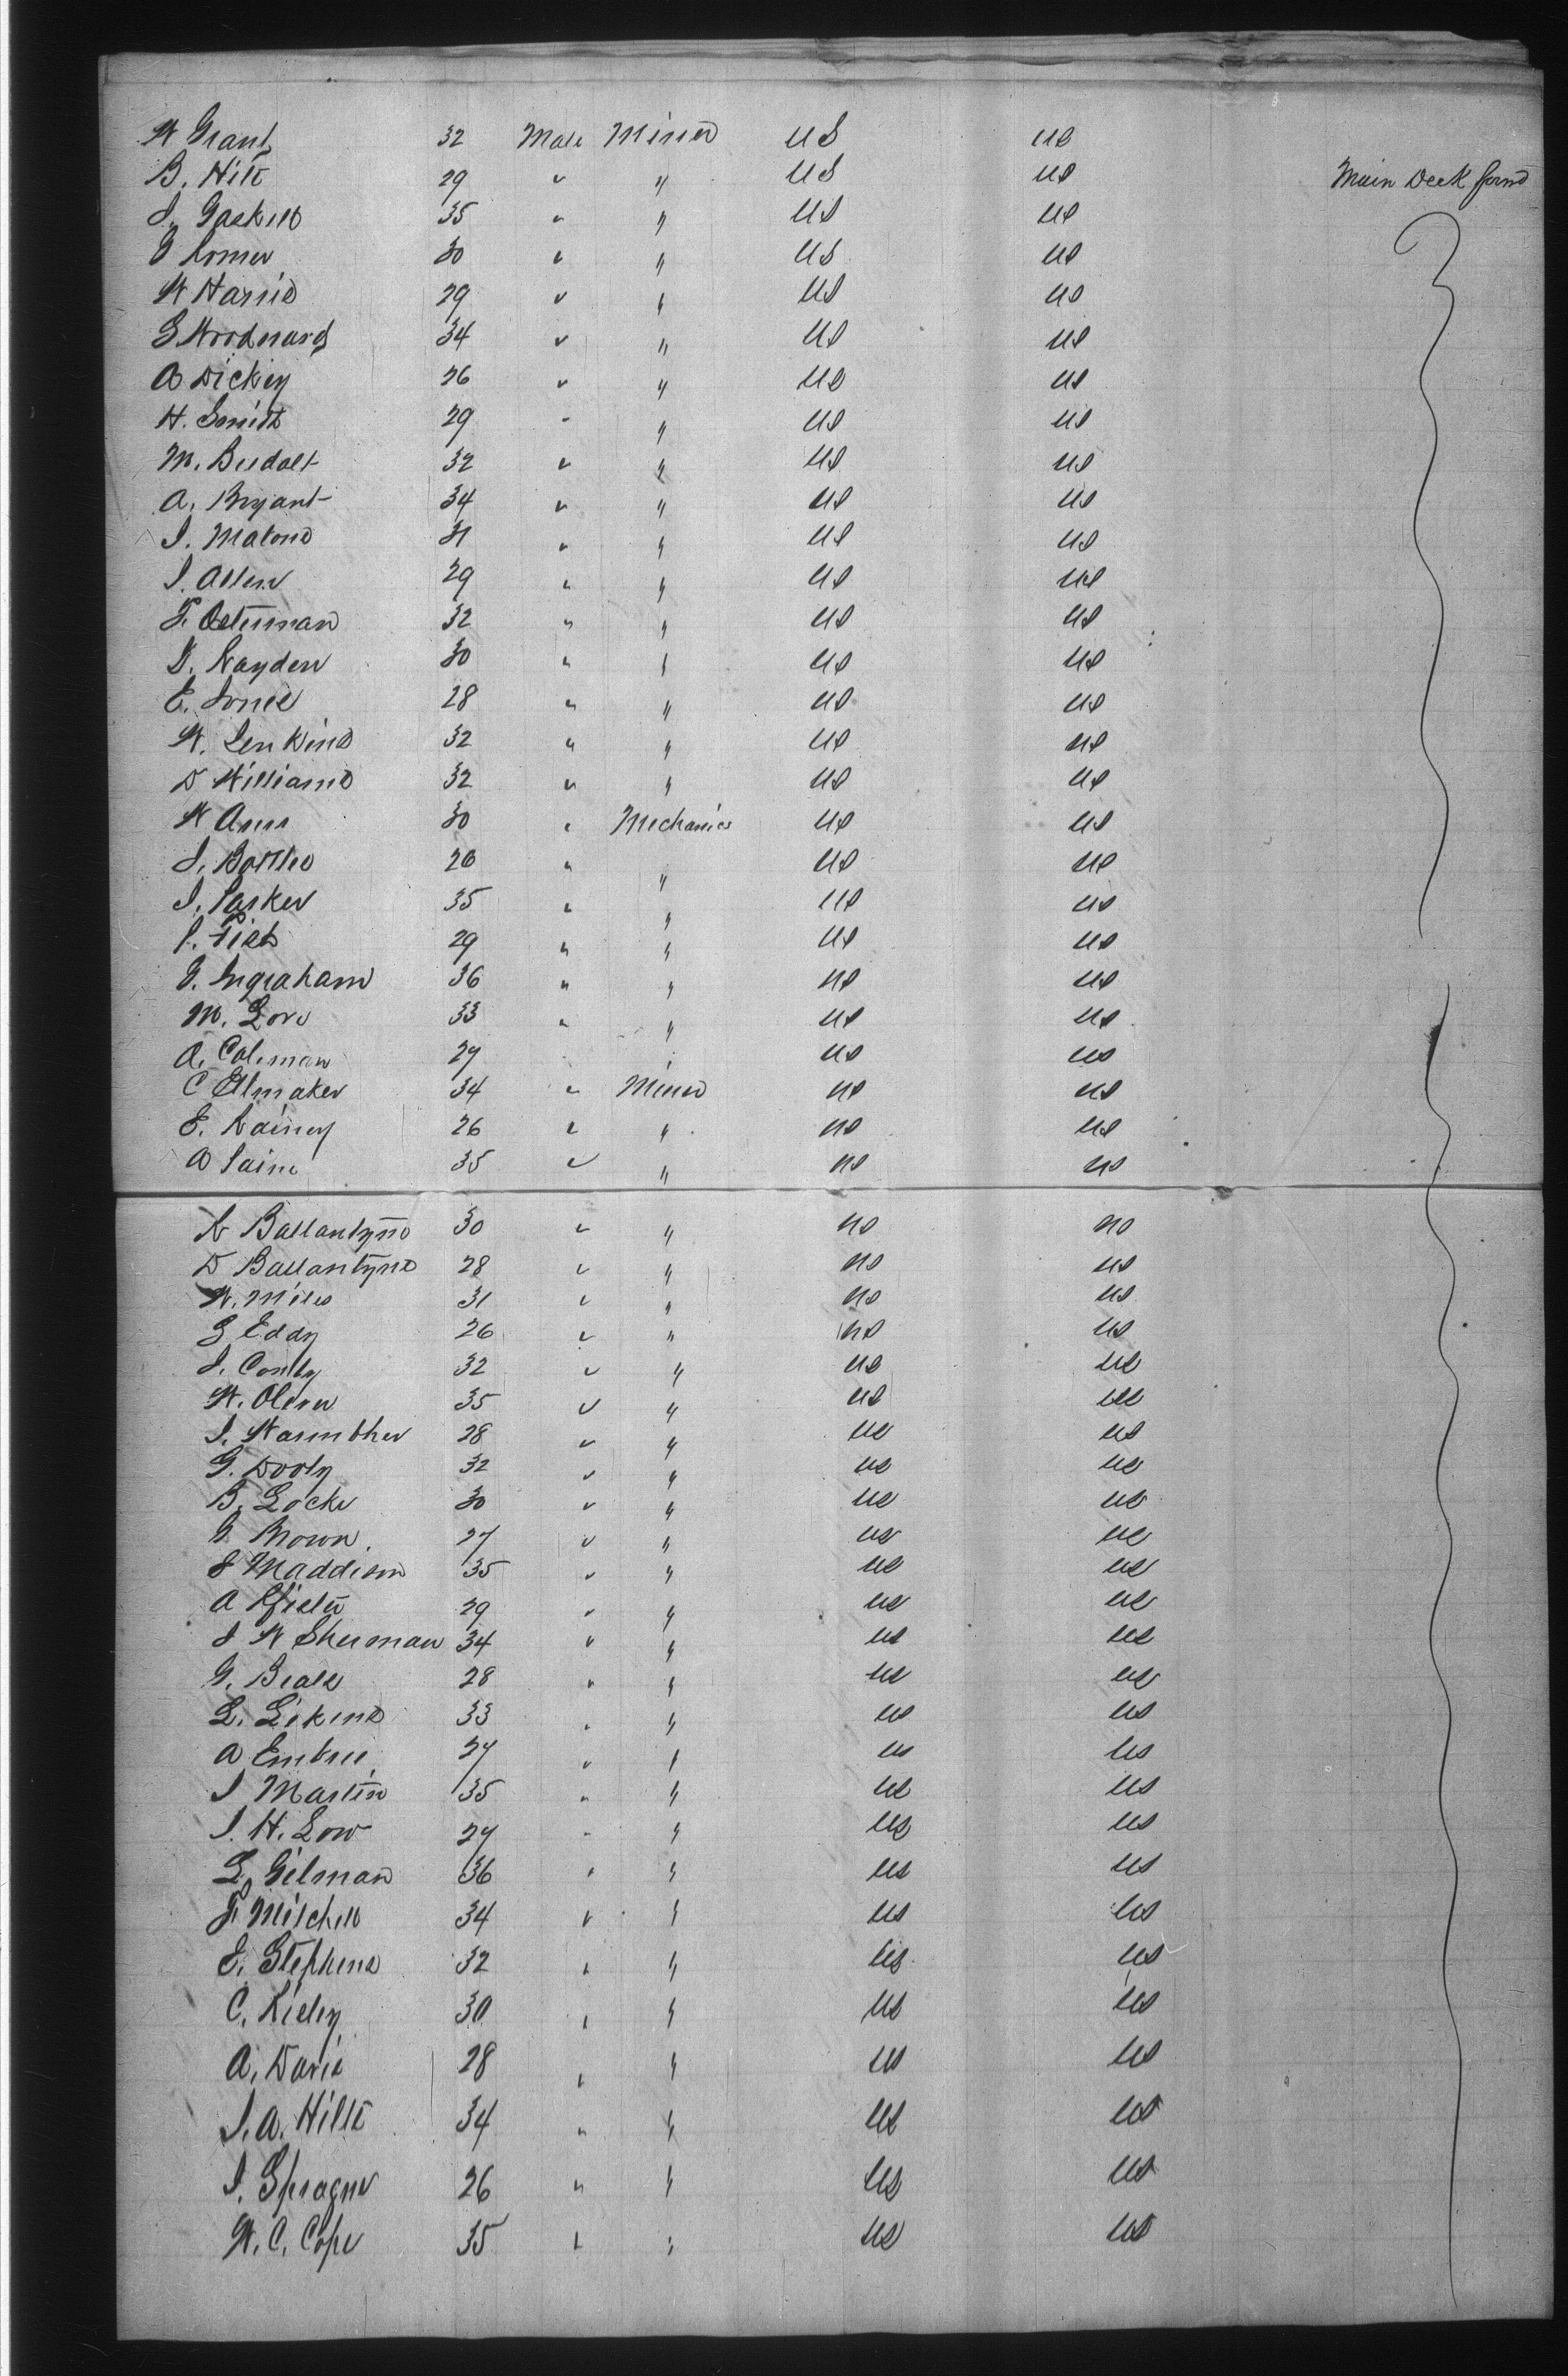 W Grant 32 Male Miner US US
B. Hill 29 " " US US Main Deck forwd
J. Gaskill 35 " " US US
30 " " US US
W Harris 29 " " US US
G Woodward 34 " " US US
A Dickey 26 " " US US
H. Smith 29 " " US US
M. 32 " " US US
A. Bryant 34 " " US US
J. Malone 31 " " US US
J. Allen 29 " " US US
F. Osterman 32 " " US US
Hayden 30 " " US US
E. Jones 28 " " US US
W. Jenkins 32 " " US US
D Williams 32 " " US US
W 30 " Mechanics US US
J. 26 " " US US
J. Parker 35 " " US US
29 " " US US
Ingraham 36 " " US US
M. Love 33 " " US US
A. Coleman 27 " " US US
C Ellmaker 34 " Miner US US
E. Rainey 26 " " US US
A Paine 35 " " US US
R Ballantyne 30 " " US US
D Ballantyne 28 " " US US
W. Miles 31 " " US US
G Eddy 26 " " US US
J. 32 " " US US
W. Oliver 35 " " US US
J. 28 " " US US
G. Dooly 32 " " US US
B. Locke 30 " " US US
G Brown 27 " " US US
J Maddison 35 " " US US
A 29 " " US US
J W Sherman 34 " " US US
G. Beale 28 " " US US
L. Likens 33 " " US US
A Embree 27 " " US US
J Martin 35 " " US US
J. H. Low 27 " " US US
L. Gilman 36 " " US US
F. Mitchell 34 " " US US
E. Stephens 32 " " US US
C. Kieley 30 " " US US
A. Davis 28 " " US US
J. A. Hill 34 " " US US
J. Sprague 26 " " US US
W. C. Cope 35 " " US US